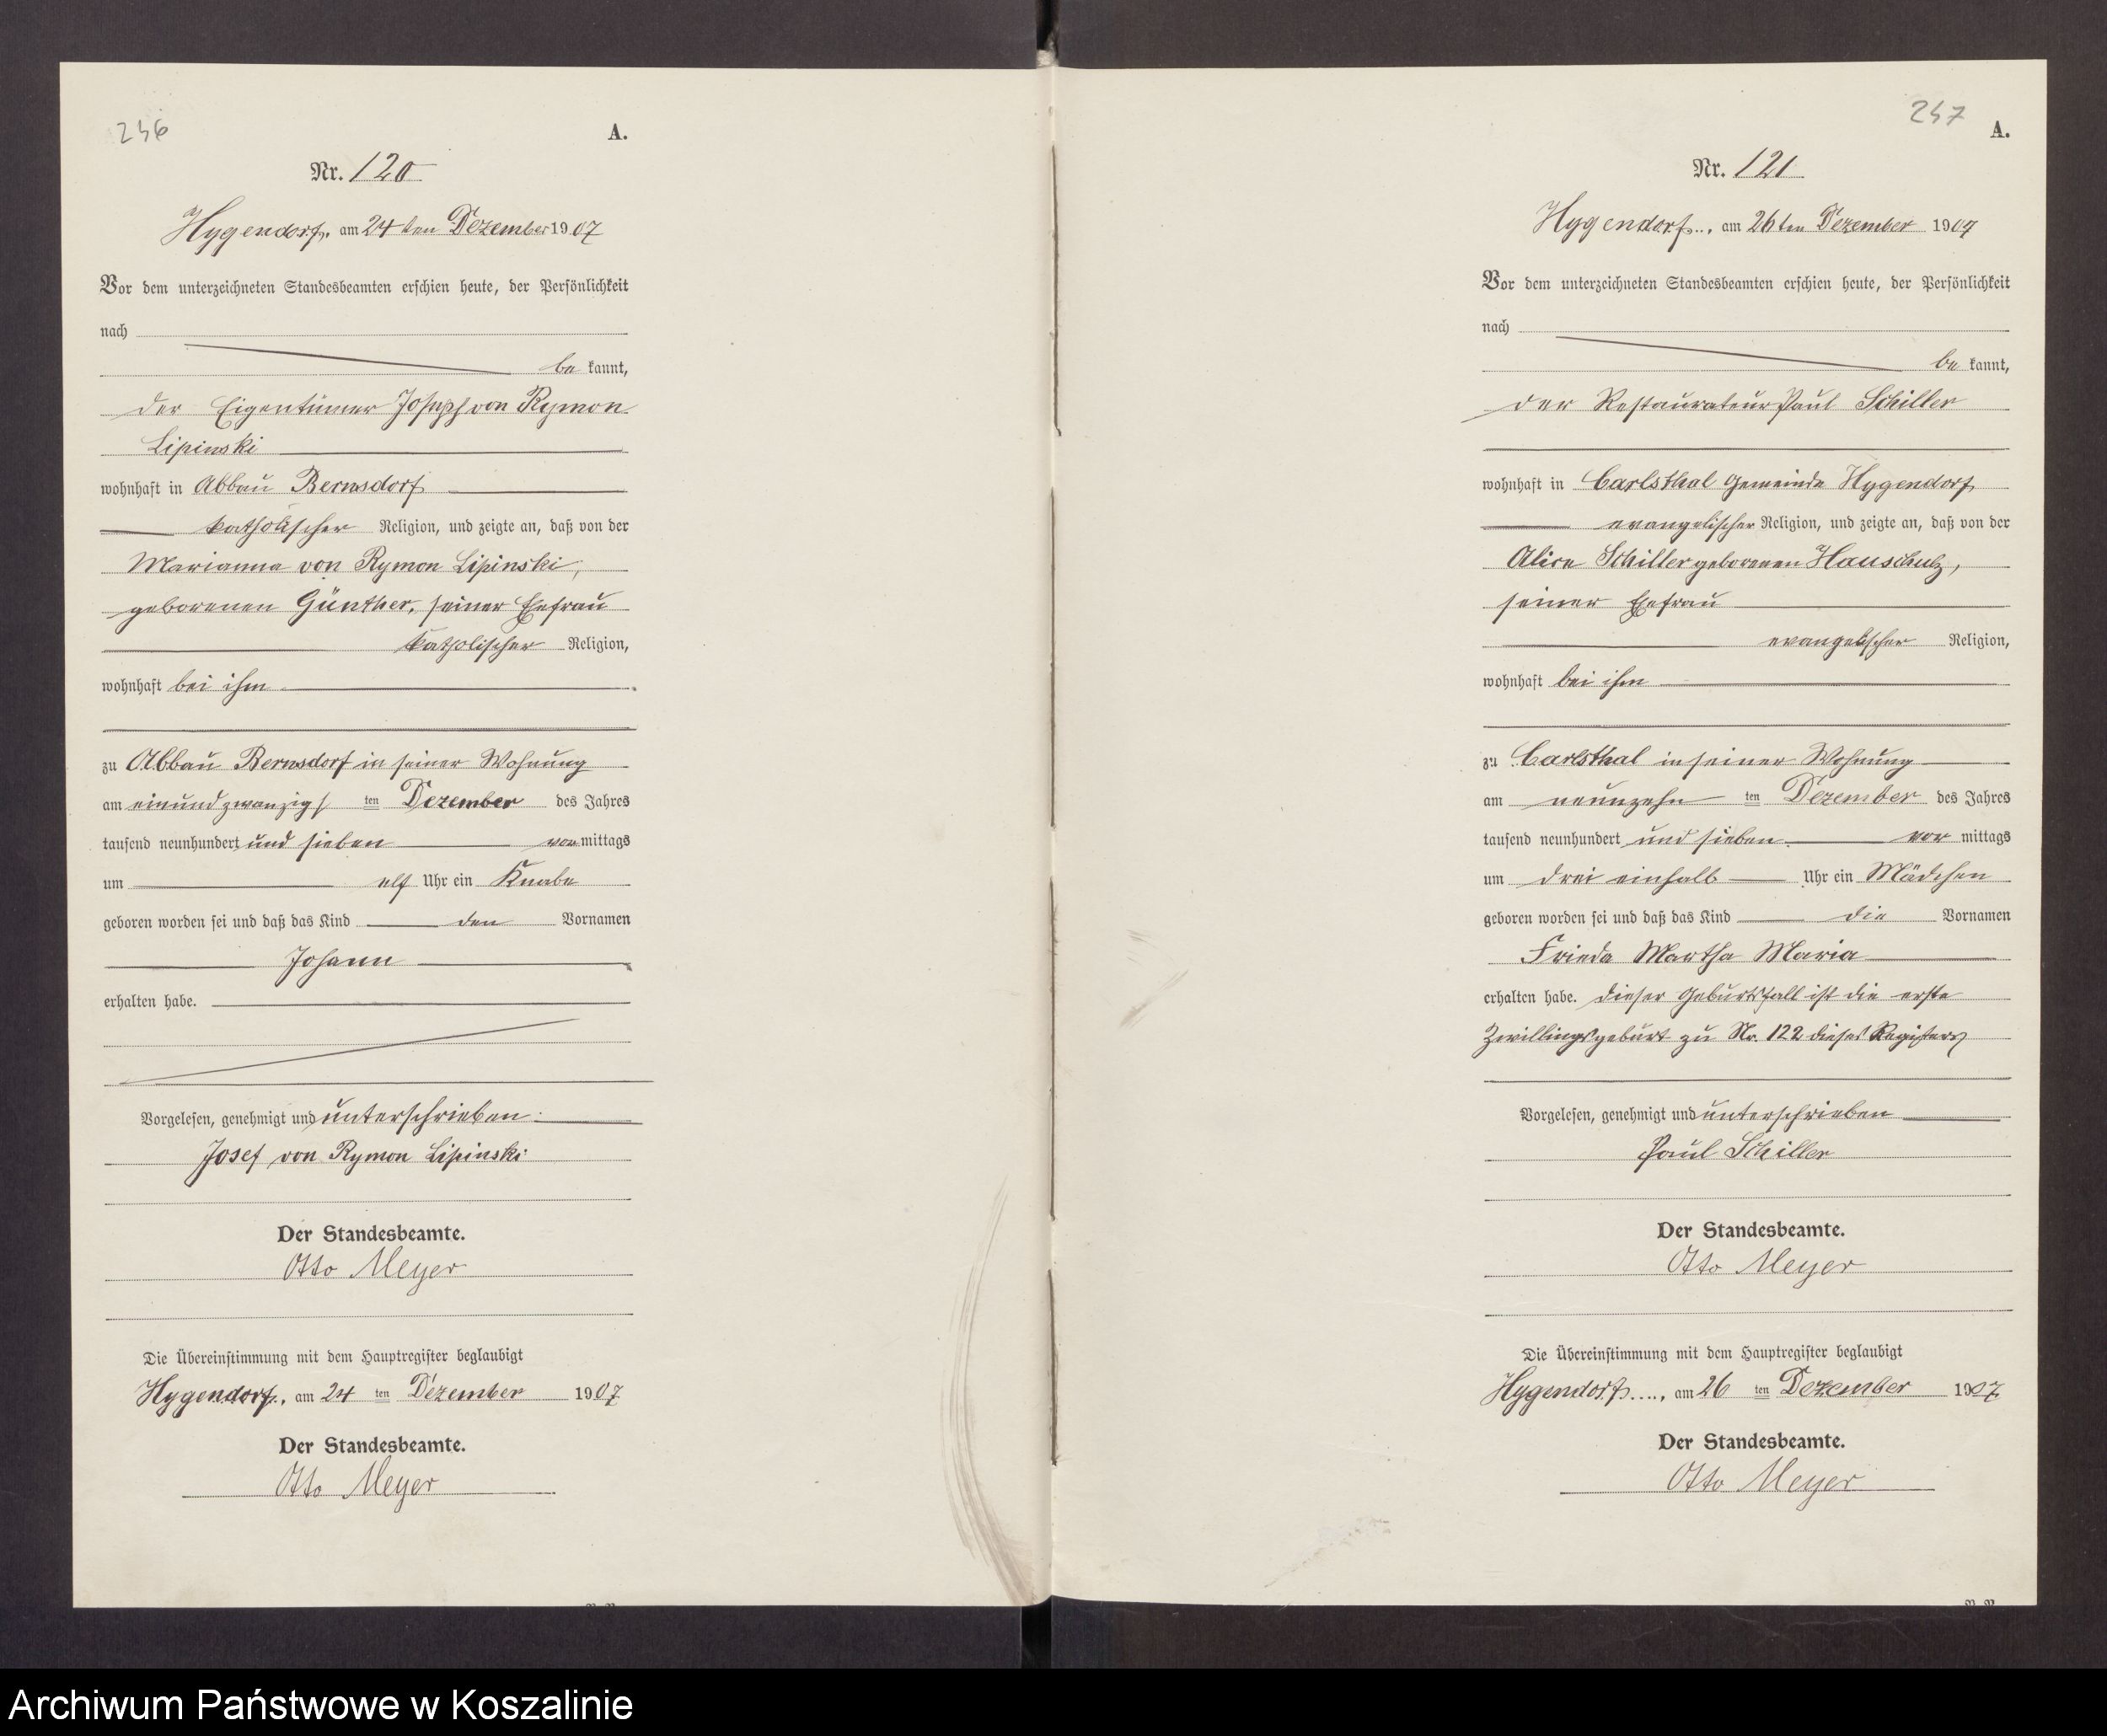 236
A.
Nr. 120
Hygendorf, am 24 ten Dezember 1907
Vor dem unterzeichneten Standesbeamten erschien heute, der Persönlichkeit
nach
be kannt,
der Eigentümer Joseph von Rymon
Lipinski
wohnhaft in Abbau Bernsdorf
katholischer Religion, und zeigte an, daß von der
Marianna von Rymon Lipinski,
geborenen Günther, seiner Ehefrau
katholischer Religion,
wohnhaft bei ihm
zu Abbau Bernsdorf in seiner Wohnung
am einundzwanzigs ten Dezember des Jahres
tausend neunhundert und sieben vor mittags
um elf Uhr ein Knabe
geboren worden sei und daß das Kind den Vornamen
Johann
erhalten habe.
Vorgelesen, genehmigt und unterschrieben:
Josef von Rymon Lipinski
Der Standesbeamte.
Otto Meyer
Die Übereinstimmung mit dem Hauptregister beglaubigt
Hygendorf, am 24 ten Dezember 1907
Der Standesbeamte.
Otto Meyer
237
A.
Nr. 121
Hygendorf, am 26 ten Dezember 1907
Vor dem unterzeichneten Standesbeamten erschien heute, der Persönlichkeit
nach
be kannt,
der Restaurateur Paul Schiller
wohnhaft in Carlsthal Gemeinde Hygendorf
evangelischer Religion, und zeigte an, daß von der
Alice Schiller geborenen Hauschulz,
seiner Ehefrau
evangelischer Religion,
wohnhaft bei ihm
zu Carlsthal in seiner Wohnung
am neunzehn ten Dezember des Jahres
tausend neunhundert und sieben vor mittags
um drei einhalb Uhr ein Mädchen
geboren worden sei und daß das Kind die Vornamen
Frieda Martha Maria
erhalten habe. Dieser Geburtsfall ist die erste
Zwillingsgeburt zu No. 122 dieses Registers
Vorgelesen, genehmigt und unterschrieben
Paul Schiller
Der Standesbeamte.
Otto Meyer
Die Übereinstimmung mit dem Hauptregister beglaubigt
Hygendorf, am 26 ten Dezember 1907
Der Standesbeamte.
Otto Meyer
Archiwum Państwowe w Koszalinie